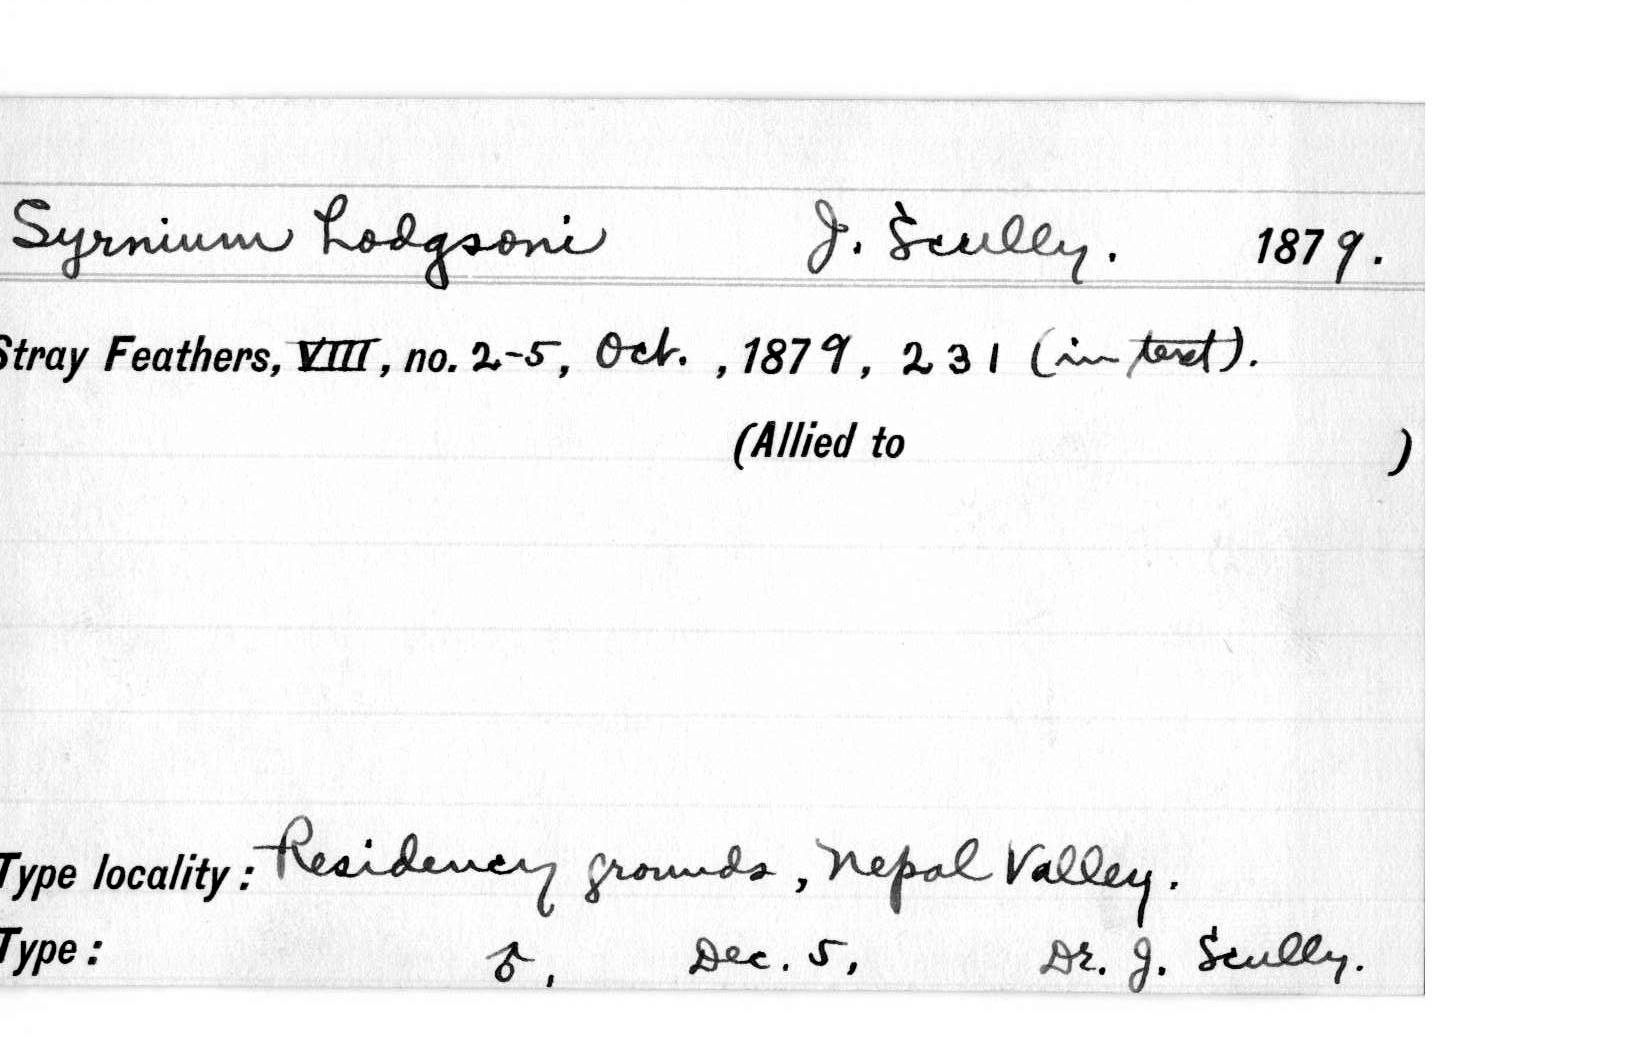 Syrnium hodgsoni J. Scully. 1879.
Stray Feathers, VIII, no. 2-5, Oct. , 1879, 231 (in text).
(Allied to )
Type locality: Residency grounds, Nepal Valley.
Type: ♂, Dec. 5, Dr. J. Scully.